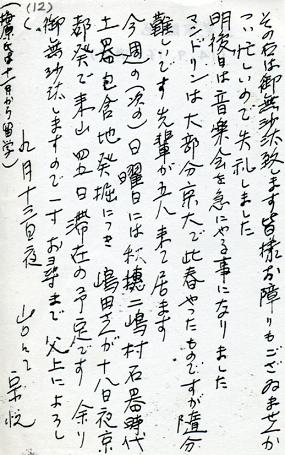 (12)
その后は御無沙汰致します皆様お障りもござゐませんか
つい忙しいので失礼しました
明後日は音楽会を急にやる事になりました
マンドリンは大部分京大で此春やったものですが随分
難しいです先輩が五人来て居ます
今週の(次の)日曜日には秋穂二嶋村石器時代
土器包含地発掘につき嶋田さんが十八日夜京
都発で来山四五日滞在の予定です余り
御無沙汰しますので一寸お尋まで父上によろし
く
九月十三日夜
山口にて
(は十一日から留学)